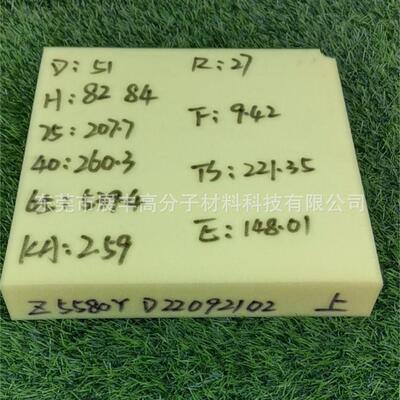 D: 51
R: 27
H: 82 84
F: 9.42
25: 207.7
40: 260.3
TS: 221.35
65:
东莞市展丰高分子材料科技有限公司
E: 148.01
KA: 2.59
Z5580Y D22092102 上